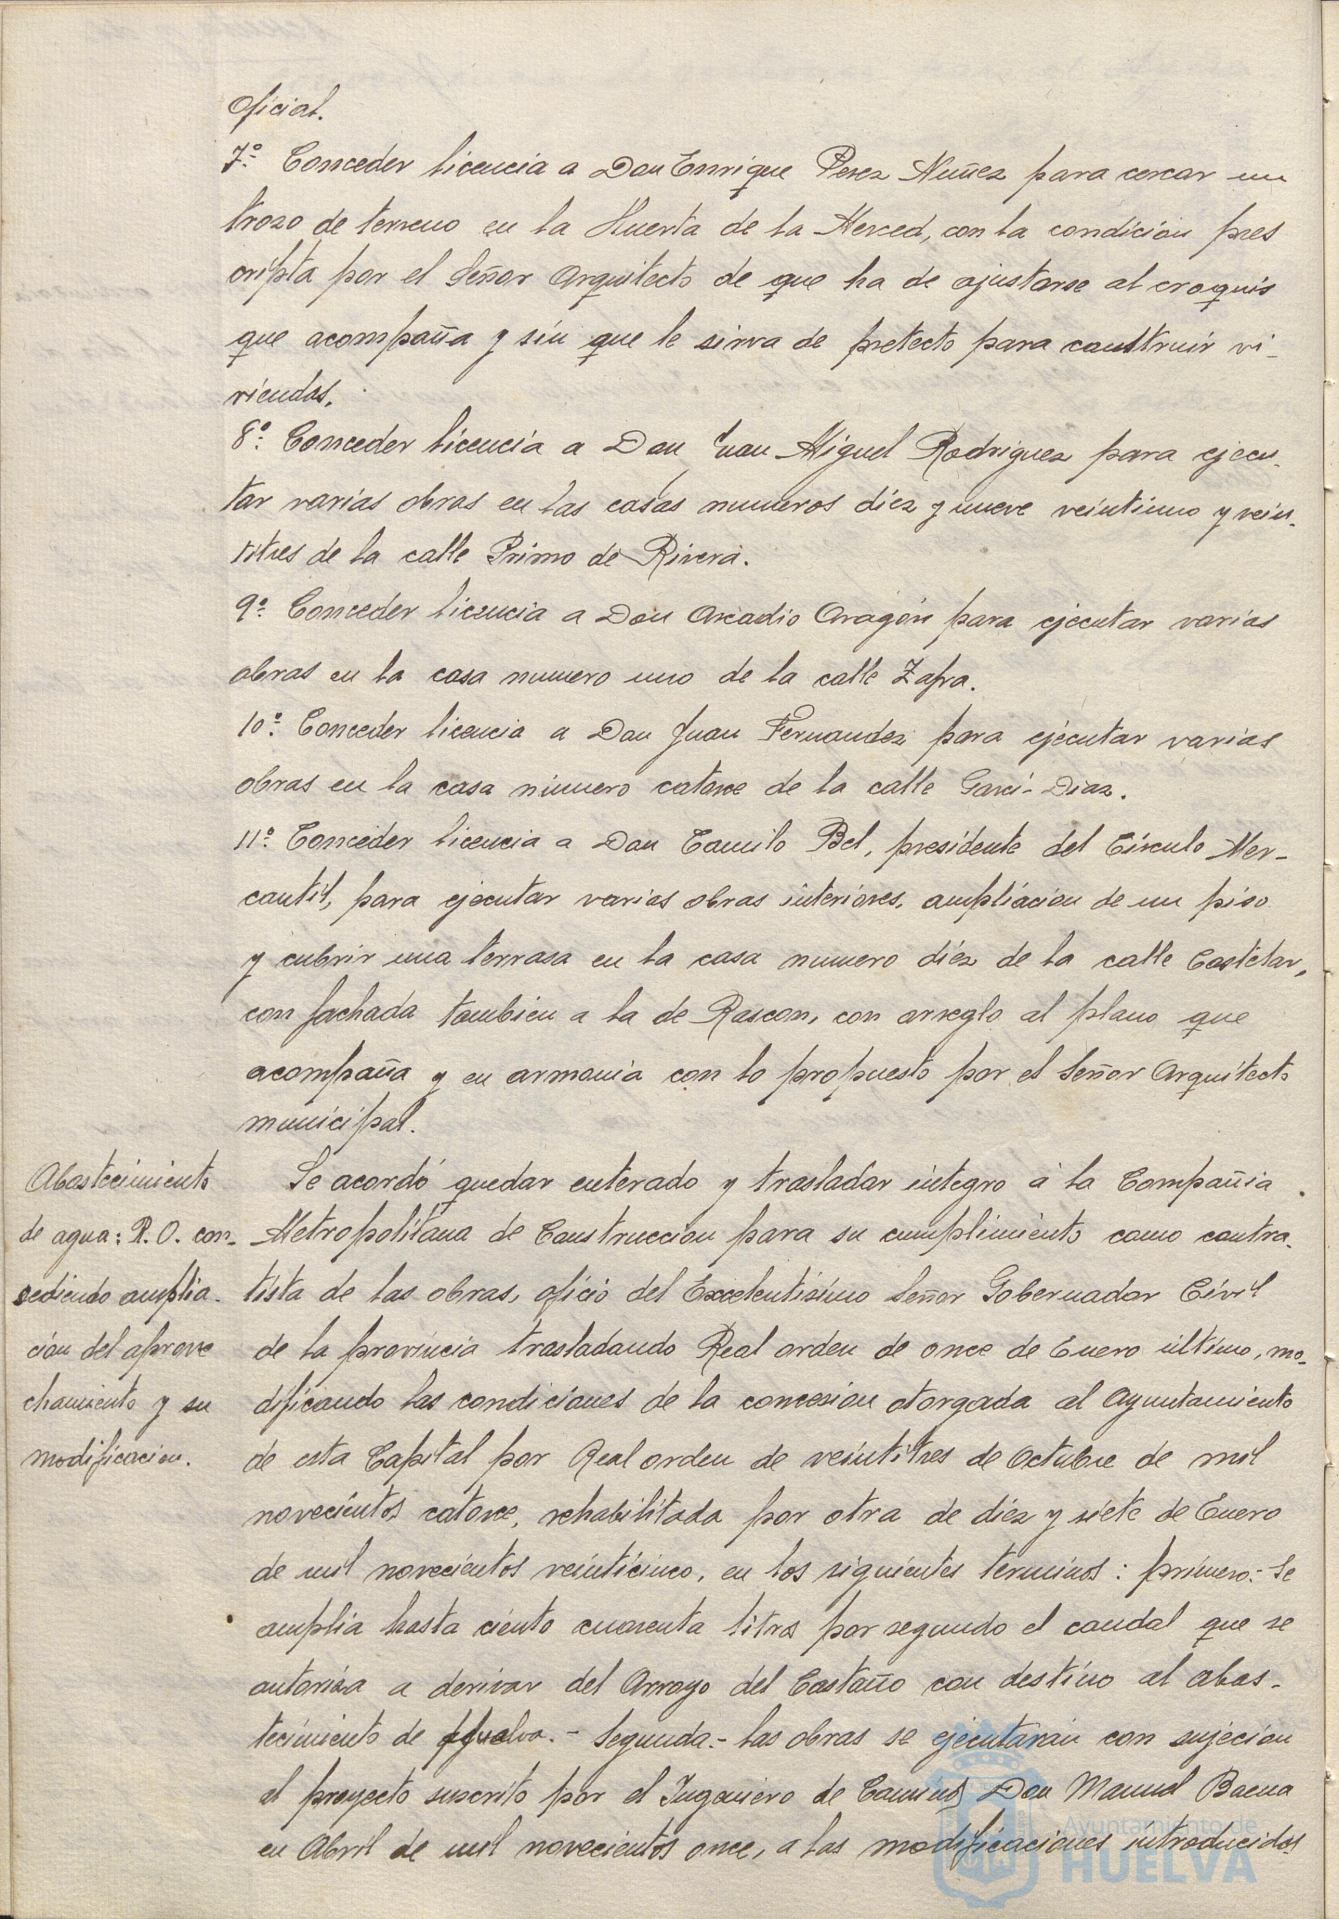 Oficial.
7º- Conceder licencia a Don Enrique Perez Nuñez para cercar un
trozo de terreno en la Huerta de la Merced, con la condición pres
cripta por el Señor Arquitecto de que ha de ajustarse al croquis
que acompaña y sin que le sirva de pretecto para construir vi-
viendas.
8º- Conceder licencia a Don Juan Miguel Rodriguez para ejecu-
tar varias obras en las casas numeros diez y nueve veintiuno y vein-
titres de la calle Primo de Rivera.
9º- Conceder licencia a Don Arcadio Aragón para ejecutar varias
obras en la casa numero uno de la calle Zafra.
10º- Conceder licencia a Don Juan Fernandez para ejecutar varias
obras en la casa número catorce de la calle Garci-Diaz.
11º- Conceder licencia a Don Camilo Bel, presidente del Círculo Mer-
cantil, para ejecutar varias obras interiores, ampliacion de un piso
y cubrir una terrasa en la casa numero diez de la calle Castelar,
con fachada tambien a la de Rascon, con arreglo al plano que
acompaña y en armonia con lo propuesto por el Señor Arquitecto
municipal.
Abastecimiento
de agua: R. O. con-
cediendo amplia-
ción del aprove
chamiento y su
modificacion.
Se acordó quedar enterado y trasladar integro á la Compañia
Metropolitana de Construccion para su cumplimiento como contra-
tista de las obras, oficio del Excelentísimo Señor Gobernador Civil
de la provincia trasladando Real orden de once de Enero último, mo-
dificando las condiciones de la concesion otorgada al Ayuntamiento
de esta Capital por Real orden de veintitres de Octubre de mil
novecientos catorce, rehabilitada por otra de diez y siete de Enero
de mil novecientos veinticinco, en los siguientes terminos: primero:- Se
amplia hasta ciento cuarenta litros por segundo el caudal que se
autoriza a derivar del Arroyo del Castaño con destino al abas-
tecimiento de Huelva.- Segunda.- Las obras se ejecutarán con sujecion
al proyecto suscrito por el Ingeniero de Caminos Don Manuel Baena
en Abril de mil novecientos once, a las modificaciones introducidas
Ayuntamiento de
HUELVA